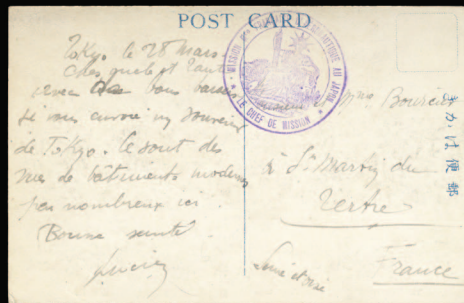 POST CARD
Tokyo le 28 Mars
vous
je vous envoie un souvenir
de Tokyo. Ce sont des
vues de bâtiments modernes
peu nombreux ici
Bonne santé
Lucien
MISSION AU JAPON
★ LE CHEF DE MISSION ★
Mme Bourcier
à St Martin du
Tertre
Seine et Oise
France
きかは便郵